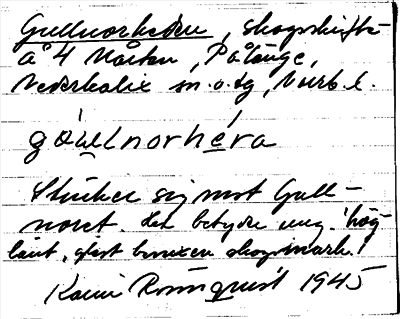 Gullnorheden, skogsskifte
å 4 Nåten, Pålänge,
Nederkalix sn. o. tg, Norrb. l.
góu̯llnorhéra
Sträcker sig mot Gull-
noret. Hed betyder ung. "hög-
länt, glest bevuxen skogsmark."
Karin Rönnquist 1945